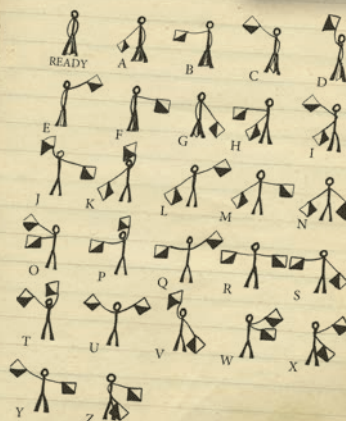 READY A B C D
E F G H I
J K L M N
O P Q R S
T U V W X
Y Z